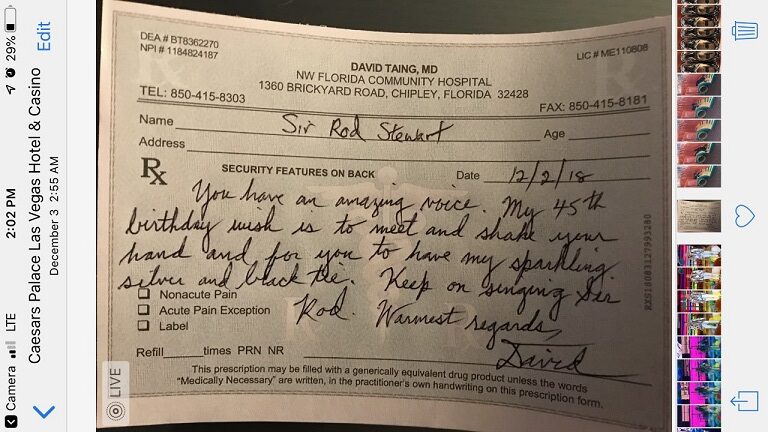 Camera LTE 2:02 PM 29%
Caesars Palace Las Vegas Hotel & Casino
December 3 2:55 AM
Edit
DEA # BT8362270
NPI # 1184824187
LIC # ME110808
DAVID TAING, MD
NW FLORIDA COMMUNITY HOSPITAL
1360 BRICKYARD ROAD, CHIPLEY, FLORIDA 32428
TEL: 850-415-8303
FAX: 850-415-8181
Name Sir Rod Stewart Age
Address
Rx SECURITY FEATURES ON BACK Date 12/2/18
You have an amazing voice. My 45th
birthday wish is to meet and shake your
hand and for you to have my sparkling
silver and black tie. Keep on singing Sir
Rod. Warmest regards,
David
Nonacute Pain
Acute Pain Exception
Label
Refill times PRN NR
This prescription may be filled with a generically equivalent drug product unless the words
“Medically Necessary” are written, in the practitioner's own handwriting on this prescription form.
LIVE